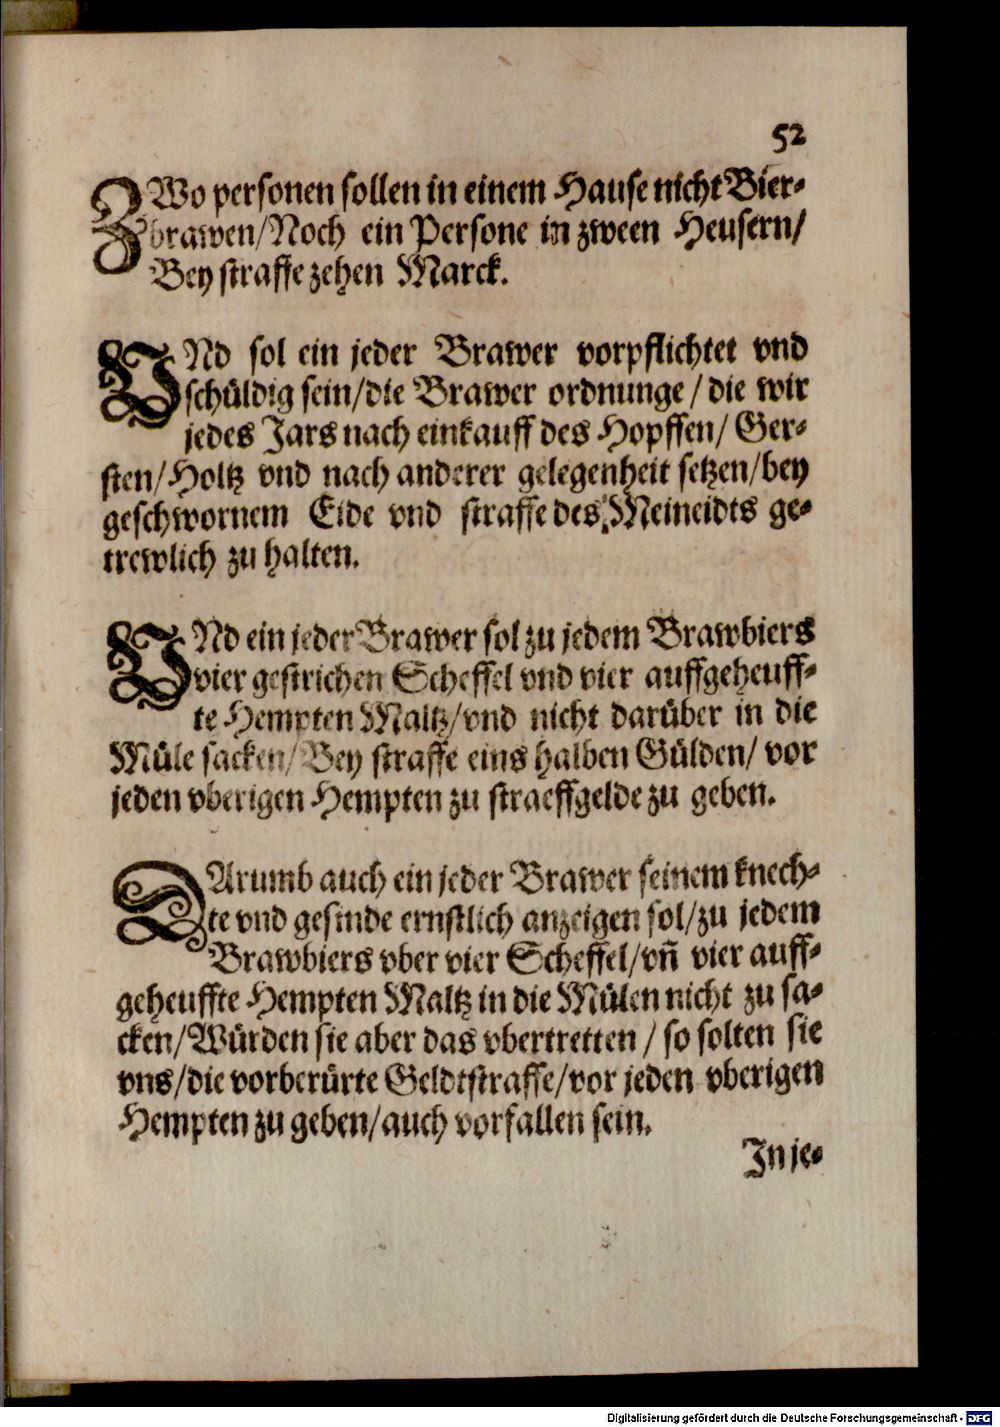 52
ZWo personen sollen in einem Hause nicht Bier-
brawen/Noch ein Persone in zween Heusern/
Bey straffe zehen Marck.
VNd sol ein jeder Brawer vorpflichtet vnd
schüldig sein/die Brawer ordnunge/die wir
jedes Jars nach einkauff des Hopffen/Ger-
sten/Holtz vnd nach anderer gelegenheit setzen/bey
geschwornem Eide vnd straffe des Meineidts ge-
trewlich zu halten.
VNd ein jeder Brawer sol zu jedem Brawbiers
vier gestrichen Scheffel vnd vier auffgeheuff-
te Hempten Maltz/vnd nicht darüber in die
Müle sacken/Bey straffe eins halben Gülden/vor
jeden vberigen Hempten zu straeffgelde zu geben.
DArumb auch ein jeder Brawer seinem knech-
te vnd gesinde ernstlich anzeigen sol/zu jedem
Brawbiers vber vier Scheffel/vñ vier auff-
geheuffte Hempten Maltz in die Mülen nicht zu sa-
cken/Würden sie aber das vbertretten/so solten sie
vns/die vorberürte Geldtstraffe/vor jeden vberigen
Hempten zu geben/auch vorfallen sein.
In je-
Digitalisierung gefördert durch die Deutsche Forschungsgemeinschaft - DFG